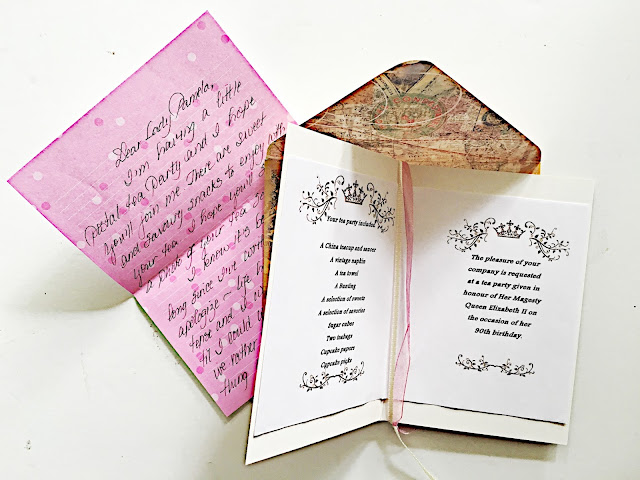 Dear Lady Pamela,
I'm having a little
Petal Tea Party and I hope
you'll join me. There are sweet
and savoury snacks to enjoy with
your tea. I hope you'll
a of your tea
I know it's
long since I've
apologize life
and if
til I could
we rather
thing
Your tea party included
A China teacup and saucer
A vintage napkin
A tea towel
A Bunting
A selection of sweets
A selection of savories
Sugar cubes
Two teabags
Cupcake papers
Cupcake picks
The pleasure of your
company is requested
at a tea party given in
honour of Her Magesty
Queen Elizabeth II on
the occasion of her
90th birthday.